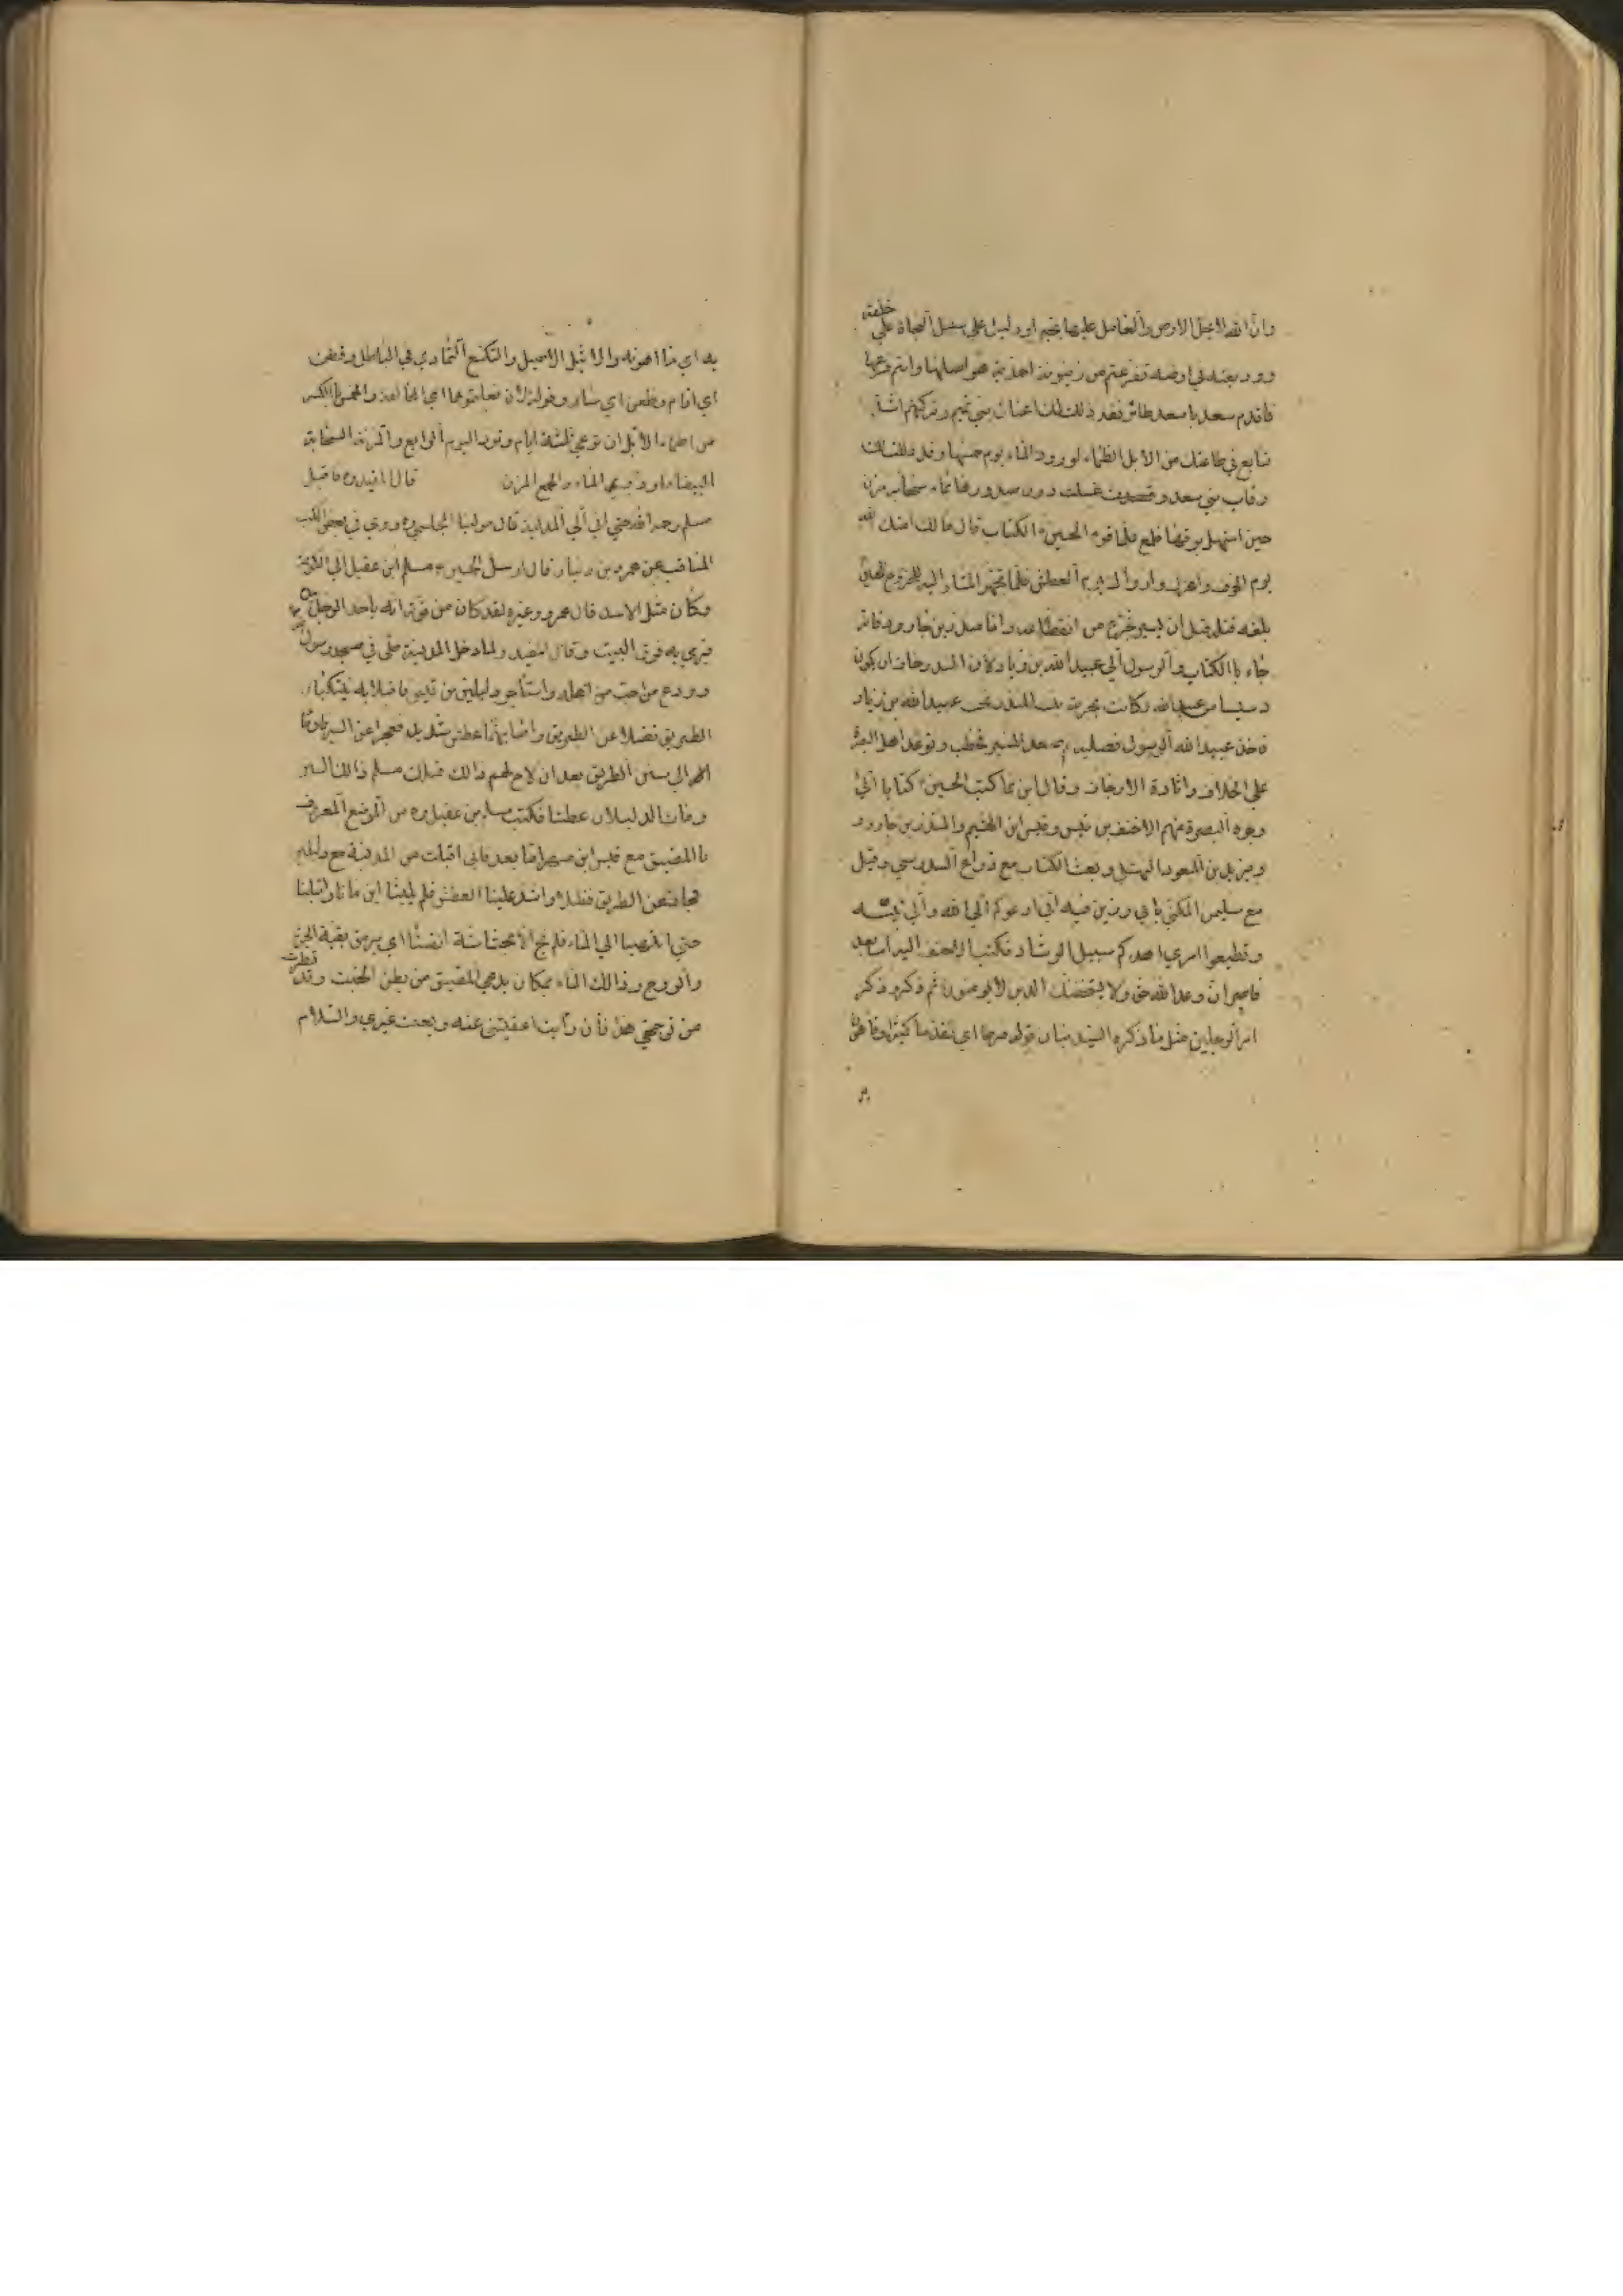 وان الله لا يخل الارض من العامل عليها بخير او دليل على سبيل النجاة على خلقه
ووديعته في ارضه تفرعتم من زيتونة احمدية هو اصلها وانتم فرعها
فاقدم سعدت باسعد طائر فقد ذلك لك اعناق بني تميم وتركتهم اشد
تتابع في طاعتك من الابل الظماء لورود الماء يوم خمسها وقد ذللت لك
رقاب بني سعد وغسلت درن صدورها بماء سحابة مزن
حين استهل برقها فلمع فلما قرء الحسين الكتاب قال مالك امنك الله
يوم الخوف واعزك وارواك يوم العطش فلما تجهز المشار اليه للخروج الى الحسين
بلغه قتله قبل ان يسير فجزع من انقطاعه واما منذر بن جارود فانه
جاء بالكتاب والرسول الى عبيد الله بن زياد لان المنذر خاف ان يكون
دسيسا من عبيد الله وكانت بحرية بنت المنذر تحت عبيد الله بن زياد
فاخذ عبيد الله الرسول فصلبه ثم صعد المنبر فخطب وتوعد اهل البصرة
على الخلاف واثارة الارجاف وقال ابن نما كتب الحسين كتابا الى
وجوه البصرة منهم الاحنف بن قيس وقيس ابن الهثيم والمنذر بن جارود
ويزيد بن المسعود النهشلي وبعث الكتاب مع ذراع السدوسي وقيل
مع سليمن المكنى بابي رزين فيه اني ادعوكم الى الله والى نبيه
وتطيعوا امري اهدكم سبيل الرشاد فكتب الاحنف اليه اما بعد
فاصبر ان وعد الله حق ولا يستخفنك الذين لا يوقنون ثم ذكر وذكر
امر الرجلين مثل ما ذكره السيد بيان قوله اي
به اي ما اهونه والاثيل الاصيل والتسكع التمادي في الباطل وقطن
اي اقام وظعن اي سار وقوله
من اظماء الابل ان ترعى ثلثة ايام وترد اليوم الرابع والمزنة السحابة
البيضاء الماء والجمع المزن قال المفيد ره فاقبل
مسلم رحمه الله حتى اتى الى المدينة قال مولينا المجلسي ره روي في بعض الكتب
المناقب عن عمرو بن دينار قال ارسل الحسين مسلم ابن عقيل الى الكوفة
وكان مثل الاسد قال عمرو وغيره لقد كان من قوته انه ياخذ الرجل بيده
فيرمي به فوق البيت وقال المفيد ولما دخل المدينة صلى في مسجد رسول
وودع من احب من اهله واستاجر دليلين من قيس فاقبلا به يتنكبان
الطريق فضلا عن الطريق واصابهما عطش شديد فعجزا عن السير فاومأ
له الى سنن الطريق بعد ان لاح لهم ذالك فسلك مسلم ذالك السنن
ومات الدليلان عطشا فكتب مسلم بن عقيل ره من الموضع المعروف
بالمضيق مع قيس ابن مسهر اما بعد فاني اقبلت من المدينة مع دليلين
فجازا عن الطريق فضلا واشتد علينا العطش فلم يلبثا ان ماتا واقبلنا
حتى انتهينا الى الماء فلم ننج الا بحشاشة انفسنا اي برمق بقية الحيوة
والروح وذالك الماء بمكان يدعى المضيق من بطن الخبت وقد تطيرت
من توجهي هذا فان رأيت اعفيتني عنه وبعثت غيري والسلام